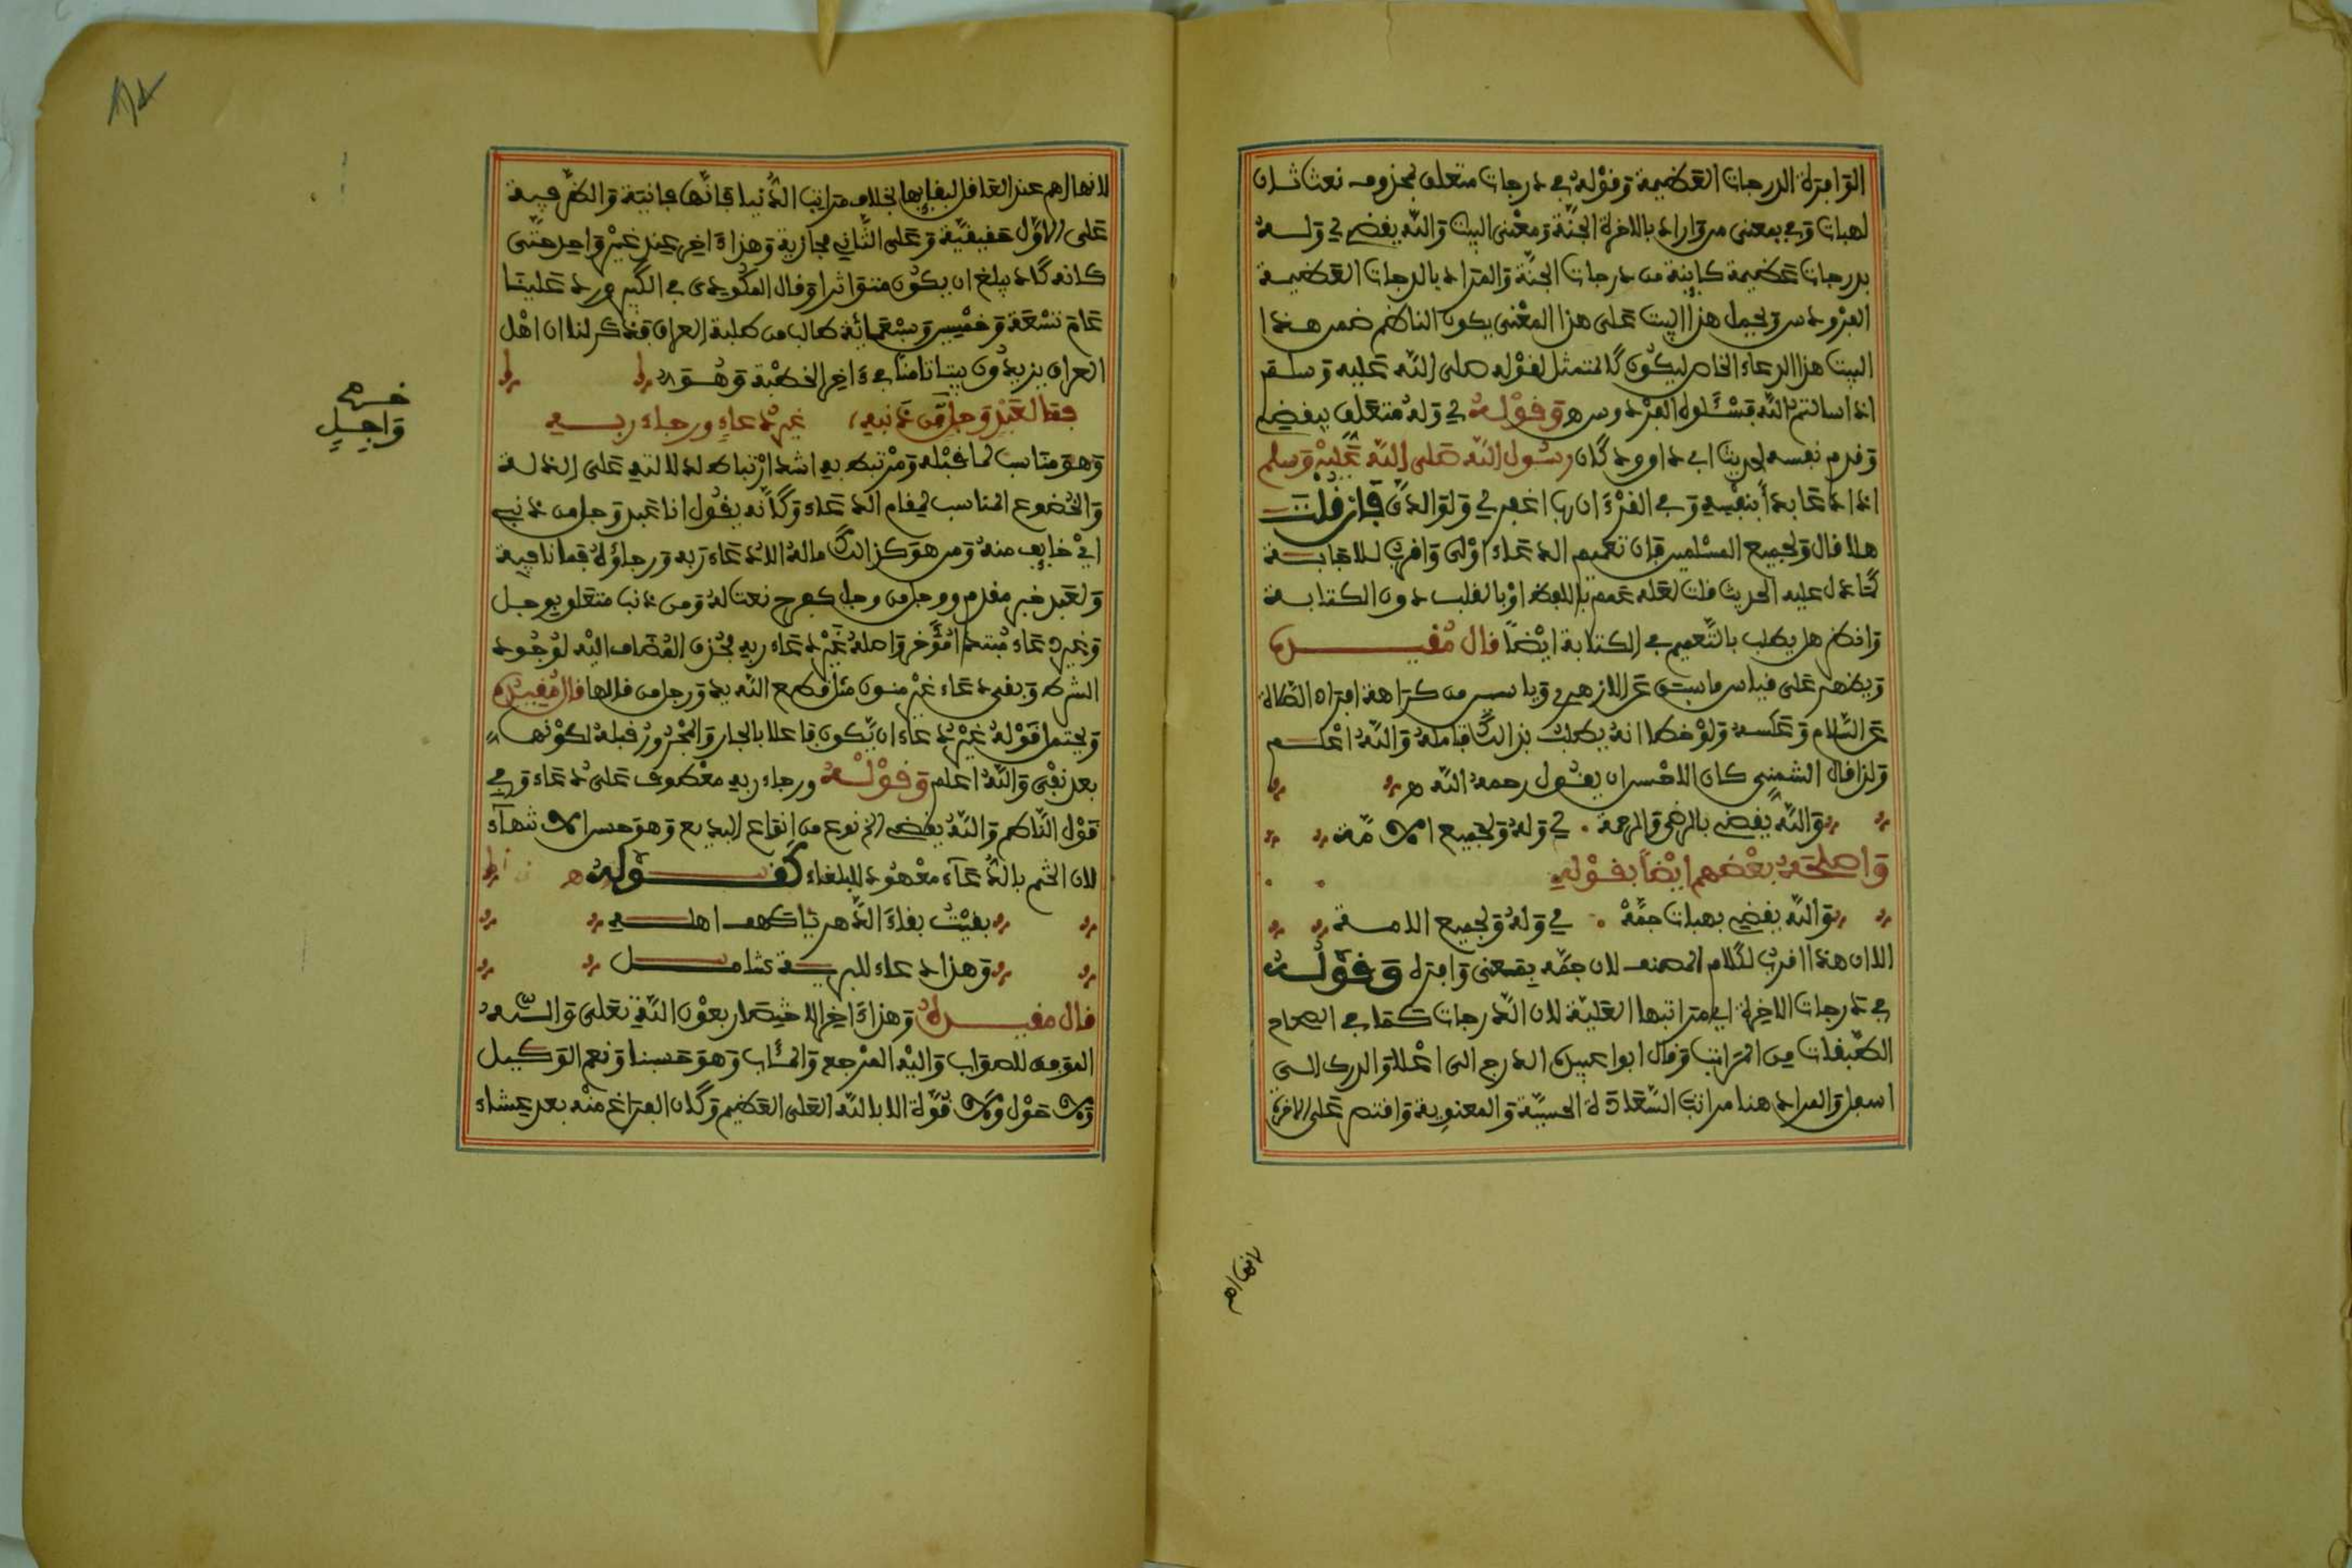 الوافرة الدرجات العظيمة وقوله في درجات متعلق بمحذوف نعت ثان
لهبات وفي بمعنى من واراد بالاخرة الجنة ومعنى البيت والله يقضي لي وله
بدرجات عظيمة كاينة من درجات الجنة والمراد بالدرجات العظيمة
الفردوس ويحمل هذا البيت على هذا المعنى يكون الناظم ضمن هذا
البيت هذا الدعاء الخاص ليكون كالمتمثل لقوله صلى الله عليه وسلم
اذا سالتم الله فسئلوه الفردوس ه وقوله لي وله متعلق بيقضي
وقدم نفسه لحديث ابي داوود كان رسول الله صلى الله عليه وسلم
اذا دعا بدأ بنفسه وفي القرءان رب اغفر لي ولوالدي فان قلت
هلا قال ولجميع المسلمين فان تعميم الدعاء اولى واقرب للاجابة
كما دل عليه الحديث قلت لعله عمم باللفظ او بالقلب دون الكتابة
وانظر هل يطلب بالتعميم في الكتابة ايضا قال مقيده
ويظهر على قياس ما سبق عن الازهري وياسين من كراهة افراد الصلاة
عن السلام وعكسه ولو خطا انه يطلب بذالك فتامله والله اعلم
ولذا قال الشمني كان الاحسن ان يقول رحمه الله ه
والله يقضي بالرضى والرحمة . لي وله ولجميع الامة
واصلحه بعضهم ايضا بقوله
والله يقضي بهبات جمة . لي وله ولجميع الامة
الا ان هذا اقرب لكلام المصنف لان جمه بمعنى وافره وقوله
في درجات الاخرة اي مراتبها العلية لان الدرجات كما في الصحاح
الطبقات من المراتب وقال ابو عبيدة الدرج الى اعلا والدرك الى
اسفل والمراد هنا مراتب السعادة الحسية والمعنوية واقتصر على الاخرة
لانها
لانها اهم عند العاقل لبقايها بخلاف مراتب الدنيا فانها فانية والظرفية
على الاول حقيقية وعلى الثاني مجازية وهذا ءاخره عند غير واحد حتى
كانه كاد يبلغ ان يكون متواترا وقال المكودي في الكبير ورد علينا
عام تسعة وخمسين وسبعمائة طالب من طلبة العراق فذكر لنا ان اهل
العراق يزيدون بيتا ثامنا في ءاخر الخطبة وهو
فما لعبد وجل من ذنبه، غير دعاء ورجاء ربه
وهو مناسب لما قبله ومرتبط به اشد ارتباط لدلالته على الذلة
والخضوع المناسب لمقام الدعاء وكأنه يقول انا عبد وجل من ذنبي
اي خايف منه ومن هو كذالك ماله الا دعاء ربه ورجاؤه فما نافية
ولعبد خبر مقدم ووجل من وجل كفرح نعت له ومن ذنب متعلق بوجل
وغير دعاء مبتدا مؤخر واصله غير دعاء ربه فحذف المضاف اليه لوجود
الشرط وبقي دعاء غير منون مثل قطع الله يد ورجل من قالها قال مقيده
ويحتمل قوله غير دعاء ان يكون فاعلا بالجار والمجرور قبله لكونها
بعد نفي والله اعلم وقوله ورجاء ربه معطوف على دعاء وفي
قول الناظم والله يقضي الخ نوع من انواع البديع وهو حسن الانتهاء
لان الختم بالدعاء معهود للبلغاء كقوله ه
بقيت بقاء الدهر يا كهف اهله
وهذا دعاء للبرية شامل
قال مقيده وهذا ءاخر الاحيصار بعون الله تعلى والله
الموفق للصواب واليه المرجع والمئاب وهو حسبنا ونعم الوكيل
ولا حول ولا قوة الا بالله العلي العظيم وكان الفراغ منه بعد عشاء
واجل